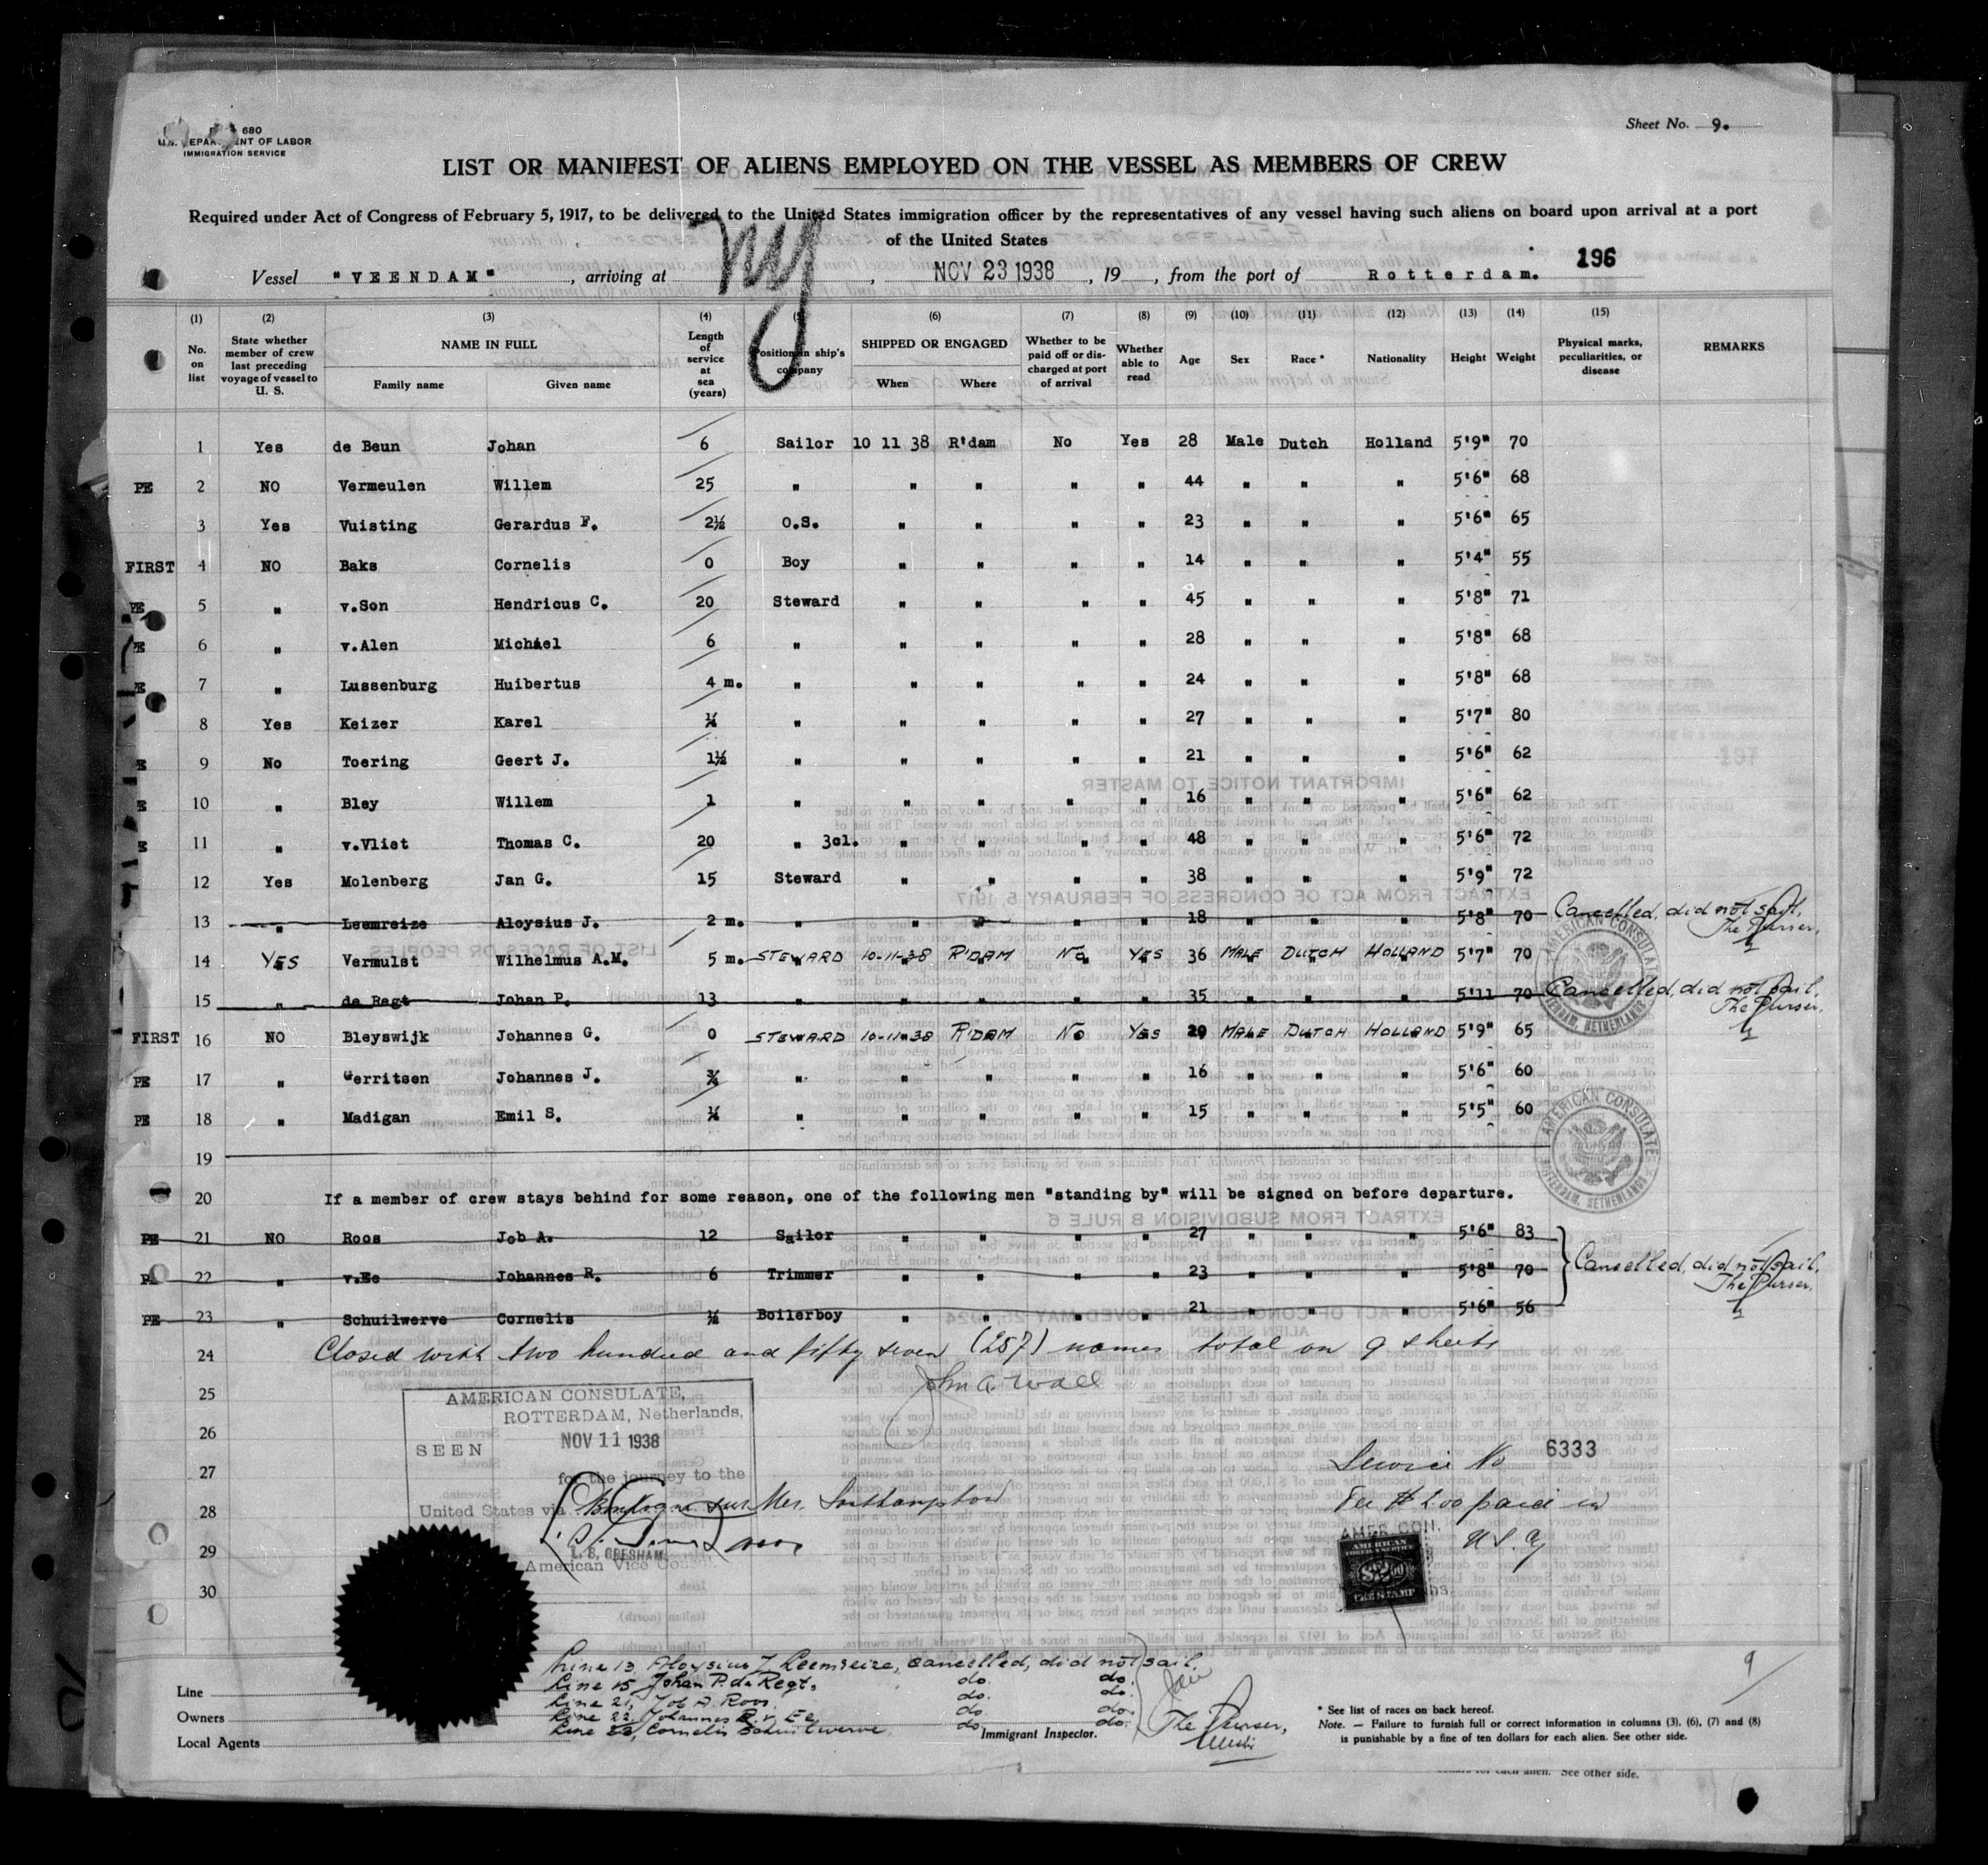 Sheet No. 9.
680
U.S. DEPARTMENT OF LABOR
IMMIGRATION SERVICE
LIST OR MANIFEST OF ALIENS EMPLOYED ON THE VESSEL AS MEMBERS OF CREW
Required under Act of Congress of February 5, 1917, to be delivered to the United States immigration officer by the representatives of any vessel having such aliens on board upon arrival at a port
of the United States
196
Vessel "VEENDAM", arriving at NY, NOV 23 1938, 19, from the port of Rotterdam.
(1) (2) (3) (4) (5) (6) (7) (8) (9) (10) (11) (12) (13) (14) (15)
No. on list State whether member of crew last preceding voyage of vessel to U. S. NAME IN FULL Family name Given name Length of service at sea (years) Position in ship's company SHIPPED OR ENGAGED When Where Whether to be paid off or discharged at port of arrival Whether able to read Age Sex Race * Nationality Height Weight Physical marks, peculiarities, or disease REMARKS
1 Yes de Beun Johan 6 Sailor 10 11 38 R'dam No Yes 28 Male Dutch Holland 5'9" 70
PE 2 NO Vermeulen Willem 25 " " " " " 44 " " " 5'6" 68
3 Yes Vuisting Gerardus F. 2½ O.S. " " " " 23 " " " 5'6" 65
FIRST 4 NO Baks Cornelis 0 Boy " " " " 14 " " " 5'4" 55
PE 5 " v.Son Hendricus C. 20 Steward " " " " 45 " " " 5'8" 71
PE 6 " v.Alen Michael 6 " " " " " 28 " " " 5'8" 68
PE 7 " Lussenburg Huibertus 4 m. " " " " " 24 " " " 5'8" 68
8 Yes Keizer Karel " " " " " 27 " " " 5'7" 80
E 9 No Toering Geert J. 1½ " " " " " 21 " " " 5'6" 62
E 10 " Bley Willem 1 " " " " " 16 " " " 5'6" 62
E 11 " v.Vliet Thomas C. 20 " 3cl. " " " " 48 " " " 5'6" 72
12 Yes Molenberg Jan G. 15 Steward " " " " 38 " " " 5'9" 72
13 " Leemreize Aloysius J. 2 m. " " " " " 18 " " " 5'8" 70 Cancelled, did not sail. The Purser.
14 YES Vermulst Wilhelmus A.M. 5 m. STEWARD 10-11-38 R'DAM No YES 36 MALE DUTCH HOLLAND 5'7" 70
15 " de Regt Johan P. 13 " " " " " 35 " " " 5'11 70 Cancelled, did not sail. The Purser.
FIRST 16 NO Bleyswijk Johannes G. 0 STEWARD 10-11-38 R'DAM No YES 20 MALE DUTCH HOLLAND 5'9" 65
PE 17 " Gerritsen Johannes J. ¾ " " " " " 16 " " " 5'6" 60
PE 18 " Madigan Emil S. " " " " " 15 " " " 5'5" 60
19
20 If a member of crew stays behind for some reason, one of the following men "standing by" will be signed on before departure.
PE 21 NO Roos Job A. 12 Sailor " " " " 27 " " " 5'6" 83
22 " v.Ee Johannes R. 6 Trimmer " " " " 23 " " " 5'8" 70 Cancelled, did not sail. The Purser.
PE 23 " Schuilwerve Cornelis ½ Boilerboy " " " " 21 " " " 5'6" 56
24 Closed with two hundred and fifty seven (257) names total on 9 sheets
25 John A. Wall
26
27
28
29
30
AMERICAN CONSULATE,
ROTTERDAM, Netherlands,
SEEN NOV 11 1938
for the journey to the
United States via Boulogne sur Mer. Southampton
L. B. GRESHAM
American Vice Co
AMERICAN CONSULATE
ROTTERDAM, NETHERLANDS
AMERICAN CONSULATE
ROTTERDAM, NETHERLANDS
Service No 6333
Fee $2.00 paid in
U.S. Cy
AMER. CON.
AMERICAN
FOREIGN SERVICE
$2.00
FEE STAMP
Line 13, Aloysius J Leemreize, cancelled, did not sail.
Line 15 Johan P. de Regt. do. do.
Line 21, Job A. Roos. do. do.
Line 22, Johannes R. v. Ee do do.
Line 23, Cornelis Schuilwerve do do.
The Purser,
Line
Owners
Local Agents
Immigrant Inspector.
9
* See list of races on back hereof.
Note. — Failure to furnish full or correct information in columns (3), (6), (7) and (8)
is punishable by a fine of ten dollars for each alien. See other side.
for each alien. See other side.